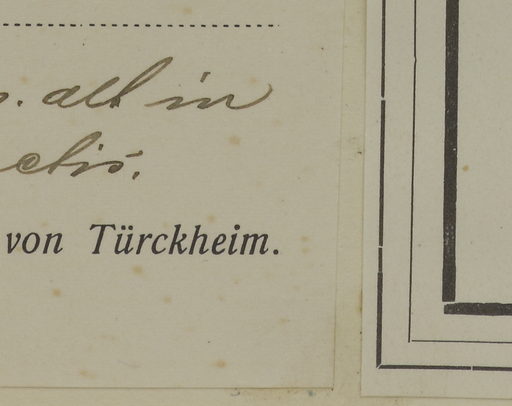 . alt in
ctis.
von Türckheim.